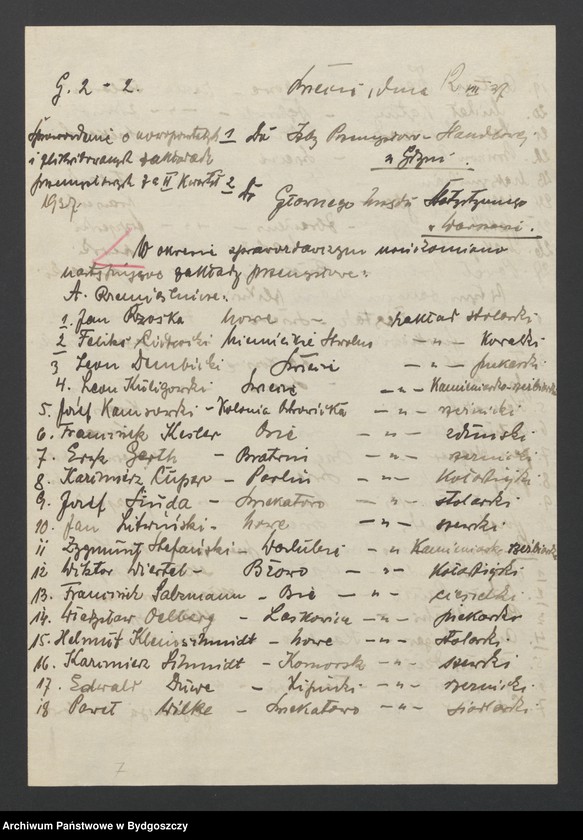 G. 2 - 2.
Świecie, dnia 12 VII 37
Sprawozdanie o nowopowstałych
i zlikwidowanych zakładach
przemysłowych za II Kwartał
1937.
1 Do Izby Przemysłowo-Handlowej
w Gdyni.
2 Do Głównego Urzędu Statystycznego
w Warszawie.
W okresie sprawozdawczym uruchomiono
następujące zakłady przemysłowe:
A. Rzemieślnicze:
1. Jan Rzoska Nowe zakład stolarski
2 Feliks - " -
3 Leon Dembicki Świecie - " - piekarski
4. Leon Świecie - " - Kamieniarsko-rzeźbiarski
5. Józef - Kolonia - " -
6. Franciszek Kesler Osie - " - zduński
7. Eryk Gerth - Bratwin - " - rzeźnicki
8. Kazimierz - Parlin - " - kołodziejski
9. Józef Świekatowo - " - stolarski
10. Jan Litwiński - Nowe - " - szewski
11 Zygmunt Stefański - Warlubie - " Kamieniarsko rzeźbiarski
12 Wiktor Wiertel - - " - kołodziejski
13. Franciszek Salzmann - - " - ciesielski
14. Władysław Oelberg - Laskowice - " - piekarski
15. Helmut Kleinschmidt - Nowe - " - stolarski
16. Kazimierz Schmidt - Komorsk - " - szewski
17. Edwald Duwe - Lipinki - " - rzeźnicki
18 Paweł Wilke - Świekatowo - " - siodlarski
7
Archiwum Państwowe w Bydgoszczy